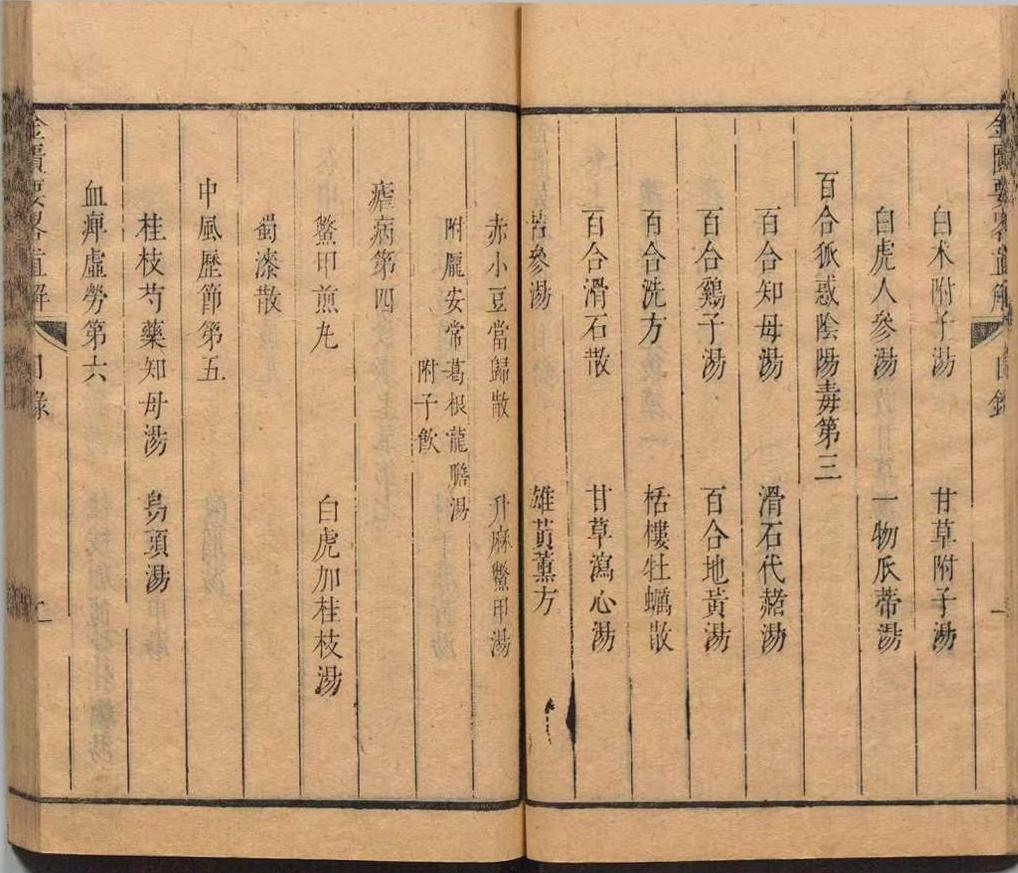 金匱要畧直解
目錄
一
白术附子湯 甘草附子湯
白虎人參湯 一物瓜蒂湯
百合狐惑陰陽毒第三
百合知母湯 滑石代赭湯
百合鷄子湯 百合地黃湯
百合洗方 栝樓牡蠣散
百合滑石散 甘草瀉心湯
苦參湯 雄黃薰方
赤小豆當歸散 升麻鱉甲湯
附龎安常葛根龍膽湯
附子飲
瘧病第四
鱉甲煎丸 白虎加桂枝湯
蜀漆散
中風歷節第五
桂枝芍藥知母湯 烏頭湯
血痺虛勞第六
金匱要畧直解
目錄